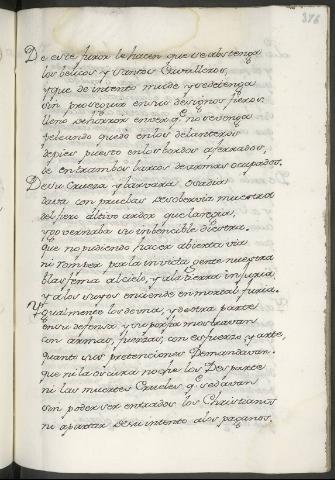 376
De este furor le hacen que se abstenga
los belicos y santos Cavalleros,
y que de intento mude y se detenga
sin proseguir en sus designos fieros.
lleno de furor en ver q. no se venga
peleando quedo en los delanteros
de pies puesto en los bordos aferrados,
de entrambos lados de armas ocupados.
De su crueza y barvara osadia
dava con pruebas de sobervia muestra
del fiero altivo ardor que la regia,
y governaba su invencible diestra.
que no pudiendo hacer abierta via
ni romper por la invicta gente nuestra
blasfema al cielo, y a la tierra injuria,
y a los suyos enciende en mortal furia.
Ygualmente los demas, y de otra parte
en su defensa y su porfia mostravan
con armas, fuerzas, con esfuerzo, y arte,
quanto sus pretenciones Demandavan.
que ni la oscura noche los Desparte
ni las muertes Crueles q. se davan
sin poder ser entrados los Christianos
ni apartar de su intento a los paganos.